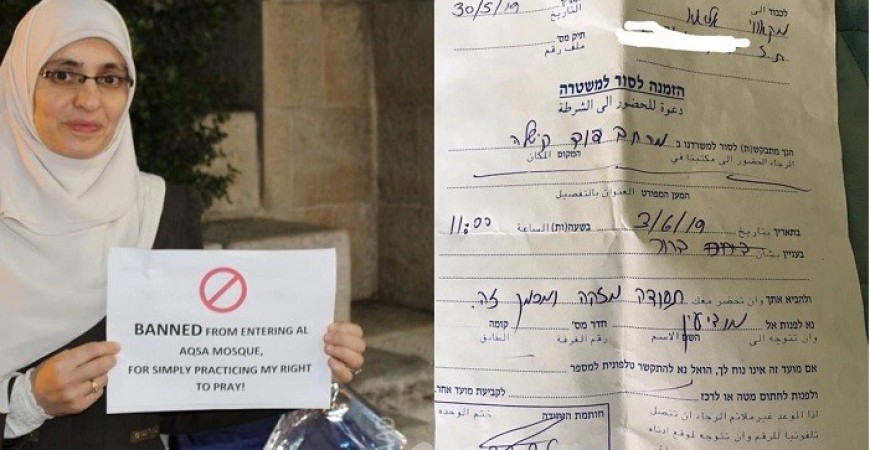 BANNED FROM ENTERING AL
AQSA MOSQUE,
FOR SIMPLY PRACTICING MY RIGHT
TO PRAY!
לכבוד الى
תאריך
التاريخ 30/5/19
תיק מס'
ملف رقم
הזמנה לסור למשטרה
دعوة للحضور الى الشرطة
הנך מתבקש(ת) לסור למשרדנו ב מרחב דוד קישלה
الرجاء الحضور الى مكتبنا في המקום المكان
המען המפורט العنوان بالتفصيل
בתאריך بتاريخ 3/6/19 בשעה(ות) الساعة 11:00
בעניין بشأن ברור
ולהביא אתך وان تحضر معك תעודה מזהה ומזמן זה.
נא לפנות אל מודיעין חדר מס' קומה
وان تتوجه الى השם الاسم رقم الغرفة الطابق
אם מועד זה אינו נוח לך, הואל נא להתקשר טלפונית למספר
ולפנות לחתום מטה או לרכז לקביעת מועד אחר.
اذا الموعد غير ملائم الرجاء ان تتصل
تلفونيا للرقم وان تتوجه لموقع ادناه
חותמת היחידה ختم الوحدة